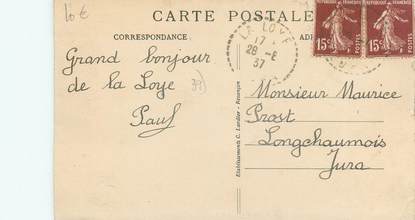 16 €
CARTE POSTALE
CORRESPONDANCE.
Grand bonjour
de la Loye
39)
Paul
LA LOYE
17
28 -8
37
15c
15c
POSTES
POSTES
Monsieur Maurice
Prost
Longchaumois
Jura
Etablissements C. Lardier - Besançon